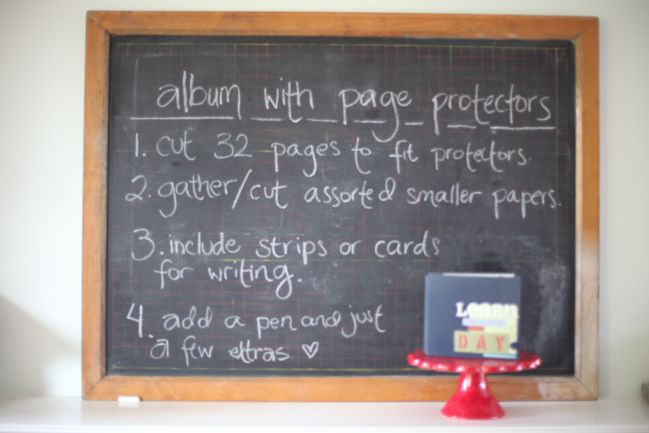 album with page protectors
1. cut 32 pages to fit protectors.
2. gather/cut assorted smaller papers.
3. include strips or cards
for writing.
4. add a pen and just
a few extras ♡
Learn
DAY